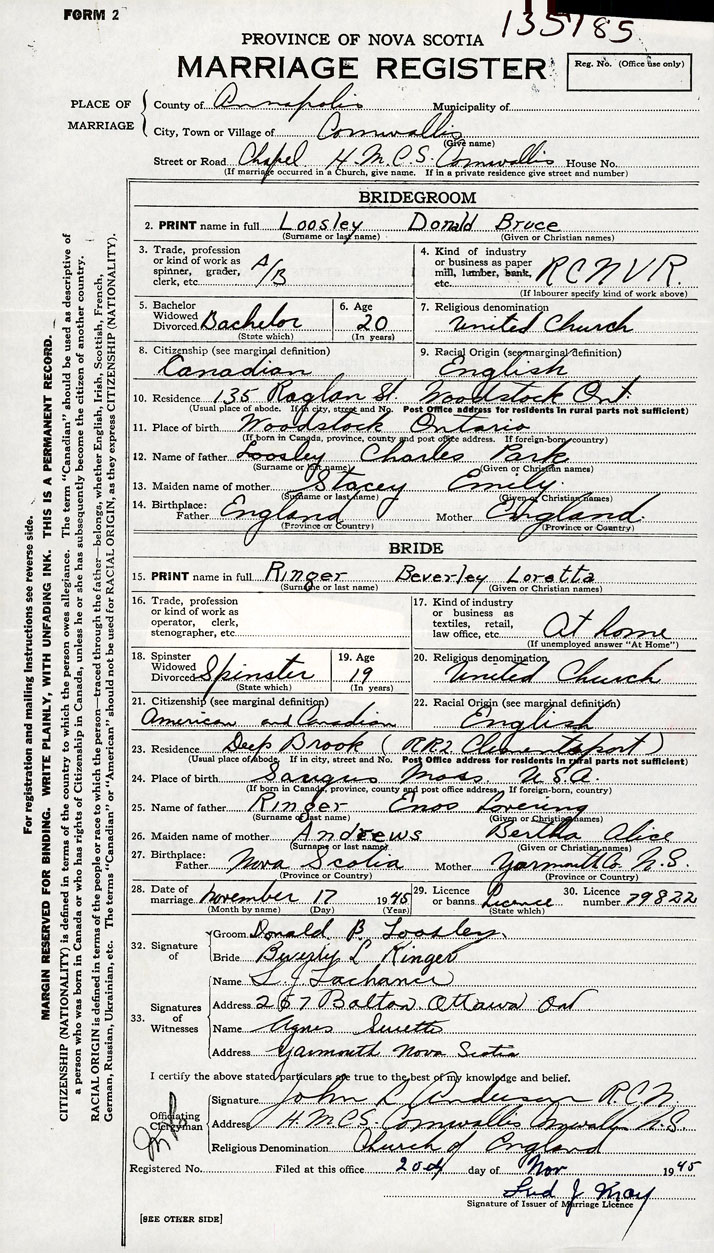 FORM 2
135785
PROVINCE OF NOVA SCOTIA
MARRIAGE REGISTER
Reg. No. (Office use only)
PLACE OF MARRIAGE
County of Annapolis Municipality of
City, Town or Village of Cornwallis
(Give name)
Street or Road Chapel H.M.C.S. Cornwallis House No.
(If marriage occurred in a Church, give name. If in a private residence give street and number)
BRIDEGROOM
2. PRINT name in full Loosley Donald Bruce
(Surname or last name) (Given or Christian names)
3. Trade, profession or kind of work as spinner, grader, clerk, etc. A/B
4. Kind of industry or business as paper mill, lumber, bank, etc. R.C.N.V.R.
(If labourer specify kind of work above)
5. Bachelor Widowed Divorced Bachelor
(State which)
6. Age 20
(In years)
7. Religious denomination United Church
8. Citizenship (see marginal definition) Canadian
9. Racial Origin (see marginal definition) English
10. Residence 135 Raglan St. Woodstock Ont.
(Usual place of abode. If in city, street and No. Post Office address for residents in rural parts not sufficient)
11. Place of birth Woodstock Ontario
(If born in Canada, province, county and post office address. If foreign-born, country)
12. Name of father Loosley Charles Park
(Surname or last name) (Given or Christian names)
13. Maiden name of mother Stacey Emily
(Surname or last name) (Given or Christian names)
14. Birthplace: Father England Mother England
(Province or Country) (Province or Country)
BRIDE
15. PRINT name in full Ringer Beverley Loretta
(Surname or last name) (Given or Christian names)
16. Trade, profession or kind of work as operator, clerk, stenographer, etc.
17. Kind of industry or business as textiles, retail, law office, etc. At home
(If unemployed answer "At Home")
18. Spinster Widowed Divorced Spinster
(State which)
19. Age 19
(In years)
20. Religious denomination United Church
21. Citizenship (see marginal definition) American and Canadian
22. Racial Origin (see marginal definition) English
23. Residence Deep Brook (RR2 Clementsport)
(Usual place of abode. If in city, street and No. Post Office address for residents in rural parts not sufficient)
24. Place of birth Saugus Mass. U.S.A.
(If born in Canada, province, county and post office address. If foreign-born, country)
25. Name of father Ringer Enos Lovering
(Surname or last name) (Given or Christian names)
26. Maiden name of mother Andrews Bertha Alice
(Surname or last name) (Given or Christian names)
27. Birthplace: Father Nova Scotia Mother Yarmouth Co. N.S.
(Province or Country) (Province or Country)
28. Date of marriage November 17 1945
(Month by name) (Day) (Year)
29. Licence or banns Licence
(State which)
30. Licence number 79822
32. Signature of
Groom Donald B. Loosley
Bride Beverly L Ringer
33. Signatures of Witnesses
Name L. J. Lachance
Address 267 Bolton Ottawa Ont
Name Agnes Surette
Address Yarmouth Nova Scotia
I certify the above stated particulars are true to the best of my knowledge and belief.
Officiating Clergyman
Signature John Anderson R.C.N.
Address H.M.C.S. Cornwallis Cornwallis N.S.
Religious Denomination Church of England
Registered No. Filed at this office 20th day of Nov 1945
Fred J May
Signature of Issuer of Marriage Licence
[SEE OTHER SIDE]
For registration and mailing instructions see reverse side.
MARGIN RESERVED FOR BINDING. WRITE PLAINLY, WITH UNFADING INK. THIS IS A PERMANENT RECORD.
CITIZENSHIP (NATIONALITY) is defined in terms of the country to which the person owes allegiance. The term "Canadian" should be used as descriptive of
a person who was born in Canada or who has rights of Citizenship in Canada, unless he or she has subsequently become the citizen of another country.
RACIAL ORIGIN is defined in terms of the people or race to which the person—traced through the father—belongs, whether English, Irish, Scottish, French,
German, Russian, Ukrainian, etc. The terms "Canadian" or "American" should not be used for RACIAL ORIGIN, as they express CITIZENSHIP (NATIONALITY).